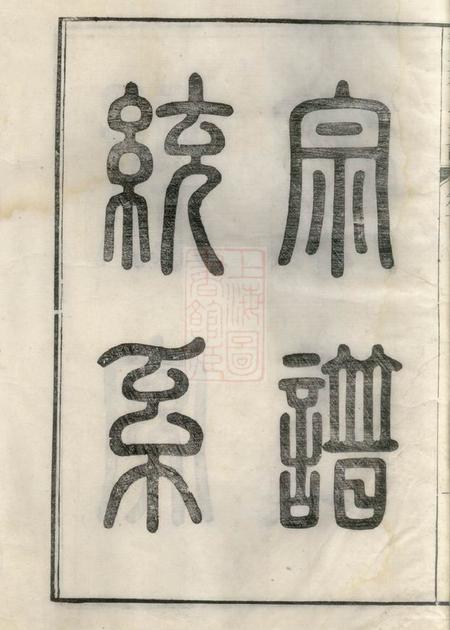 宗譜
統系
上海圖
書館藏